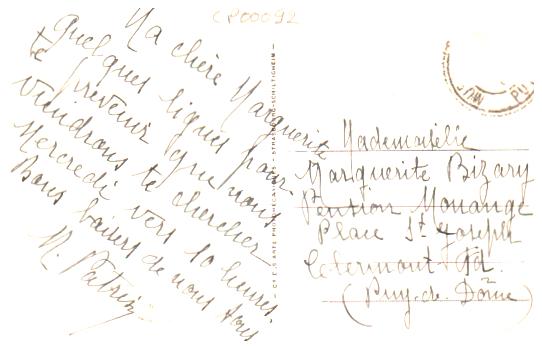 CP00092
Ma chère Marguerite
Quelques lignes pour
te prévenir que nous
viendrons te chercher
Mercredi vers 10 heures.
Bons baisers de nous tous
M.
STRASBOURG-SCHILTIGHEIM
Mademoiselle
Marguerite Bizary
Pension Monange
Place St Joseph
Clermont Fd.
(Puy-de-Dôme)
PUY